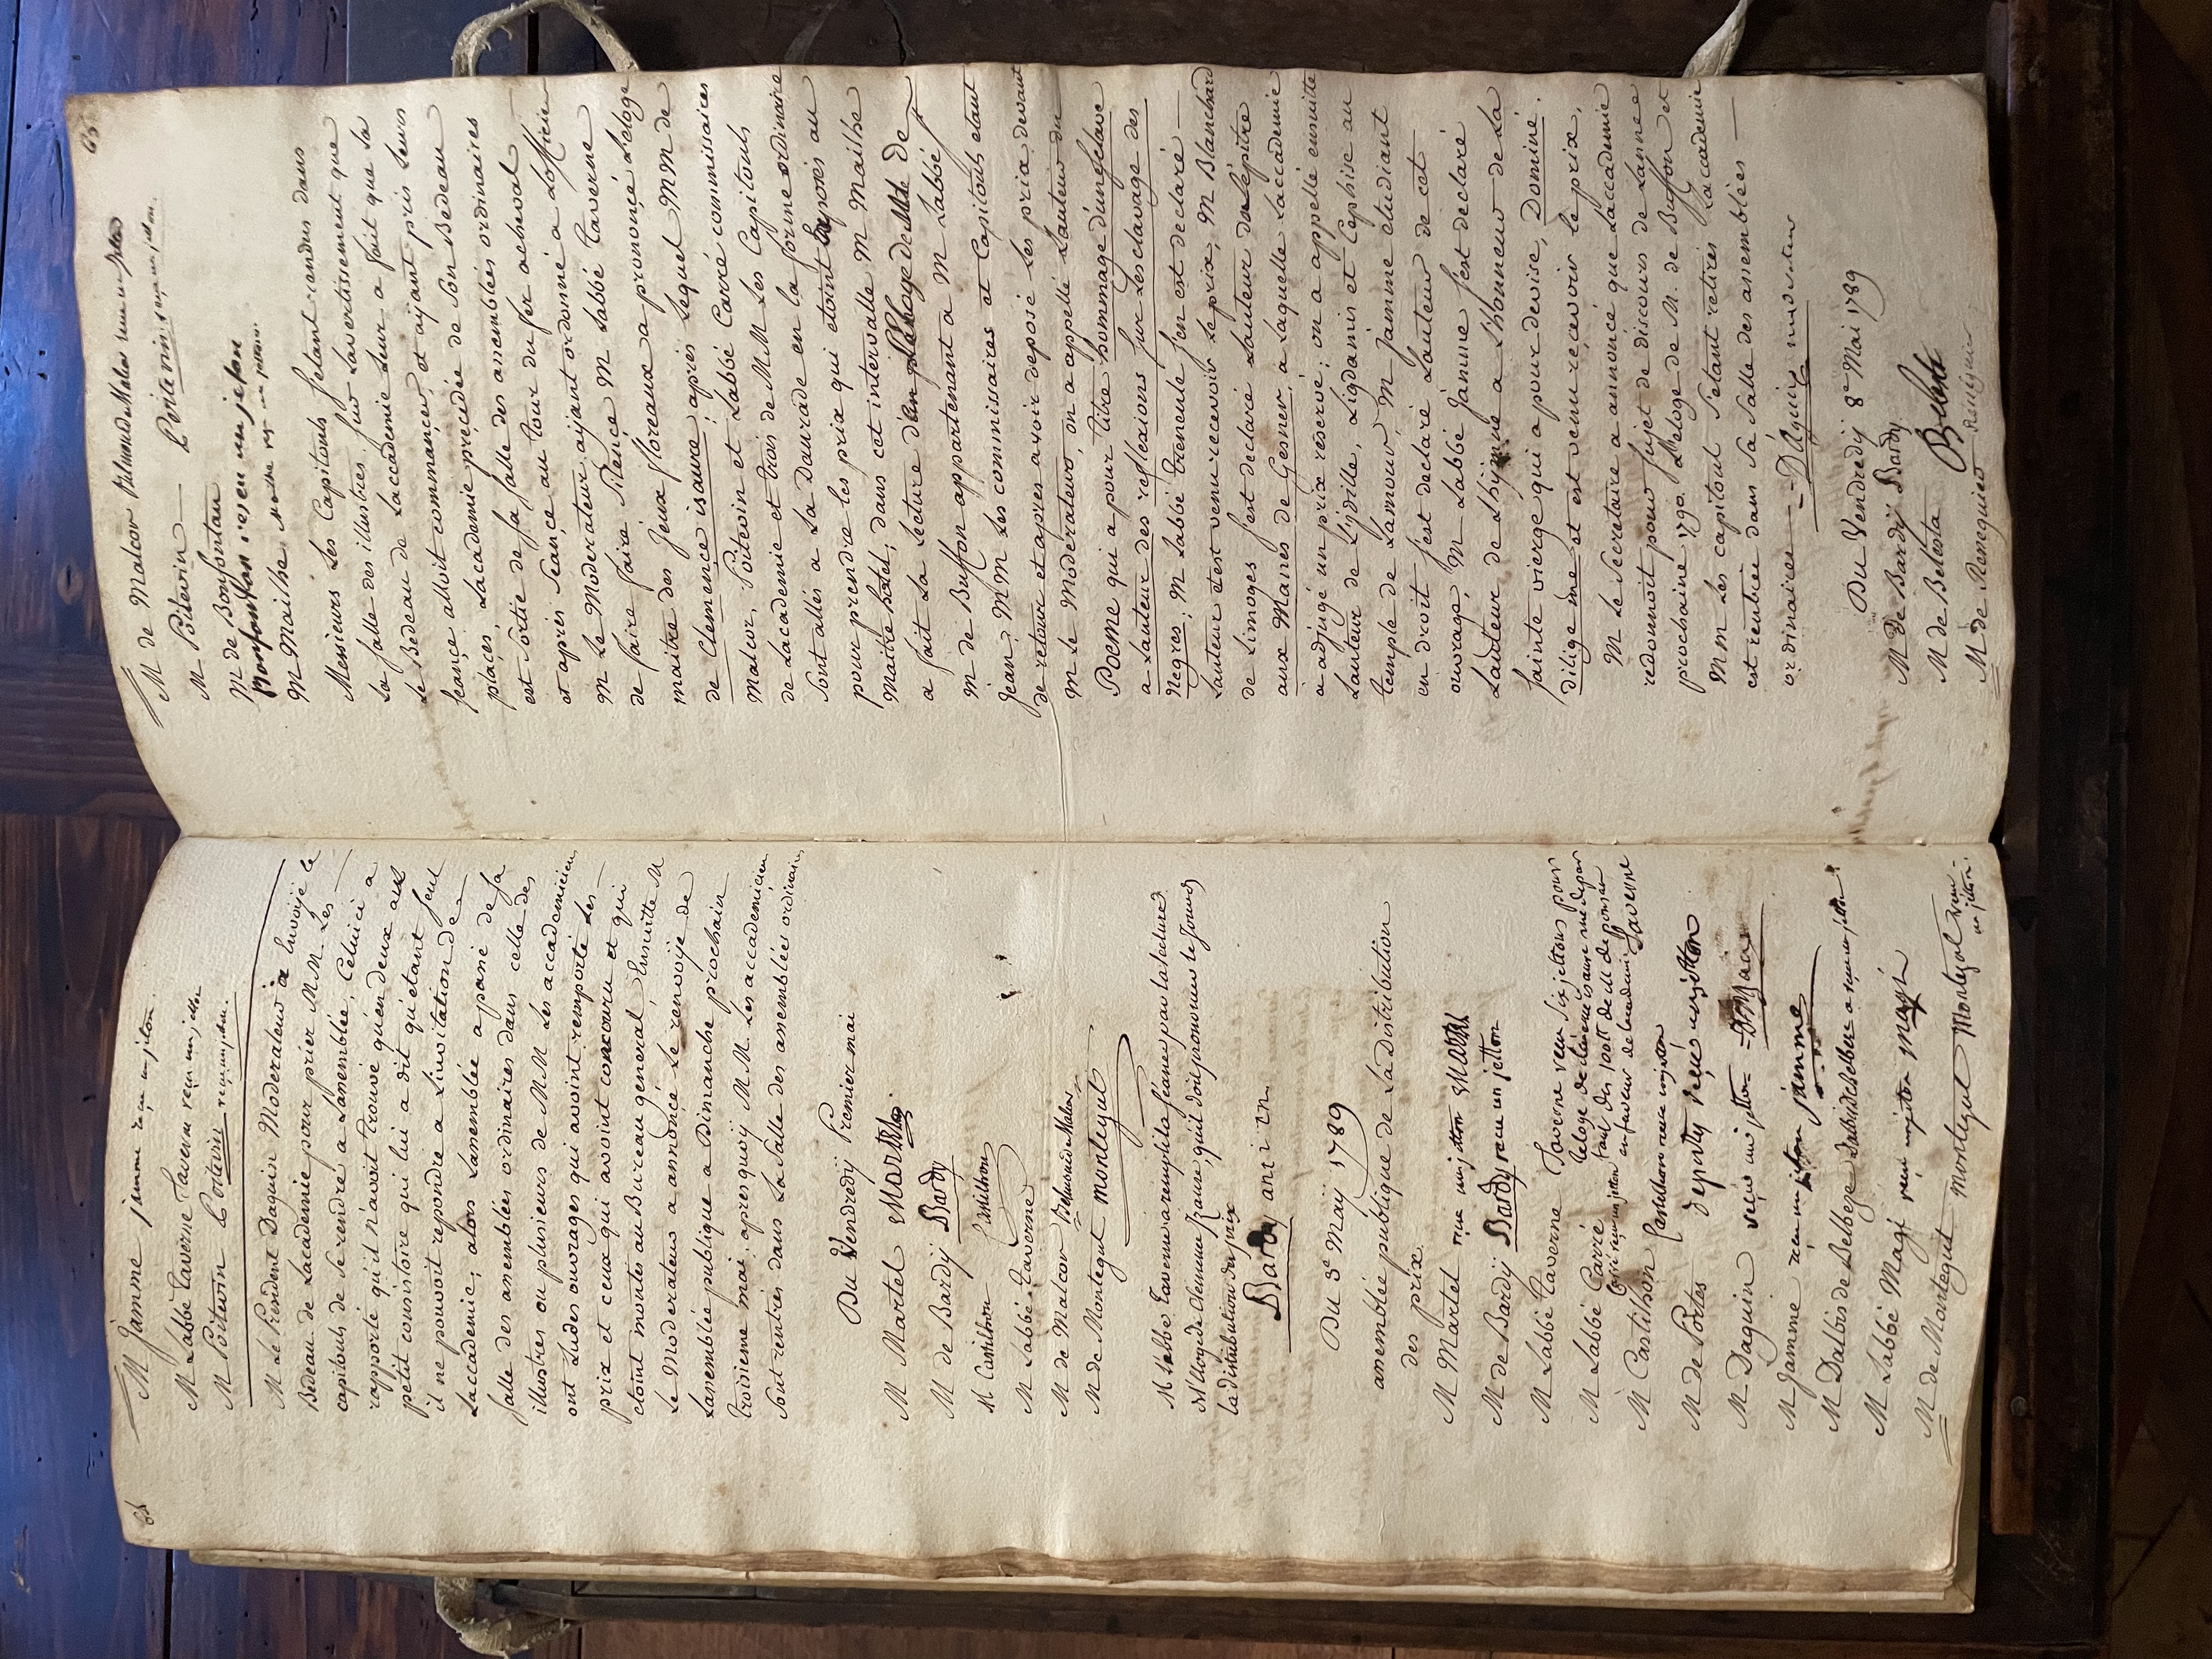 64
M Jamme Jamme reçu un jetton.
M Labbé Taverne Taverne reçu un jetton
M Poitevin Poitevin reçu un jetton.
M Le President Daguin Moderateur a Envoijé le
Bedeau de Lacadémie pour prier M M. Les
capitouls de se rendre a Lassemblée, Celuici a
rapporté qu'il n'avoit trouvé qu'en deux au
petit consistoire qui lui a dit qu'étant seul
il ne pouvoit repondre a Linvitation de
Laccademie; alors Lassemblée a passé de sa
salle des assemblées ordinaires dans celle des
illustres ou plusieurs de M M Les accademiciens
ont Lu des ouvrages qui avoint remporté Les
prix et ceux qui avoint concouru et qui
etoint montés au Bureau general, Ensuitte M
Le Moderateur a annoncé Le renvoije de
Lassemblée publique a Dimanche prochain
troisieme mai, apres quoij M M. Les accademiciens
sont rentrés dans La Salle des assemblées ordinaires
Du Vendredij Premier mai
M Martel Martel
M de Bardij Bardy
M Castilhon Castilhon
M Labbé Taverne
M de Malcor Palmade Malcor
M de Montegut montegut
M labbé Taverne a rempli la séance par la lecture
de l'éloge de clemence Isaure, quil doit prononcer le jour de
la distribution des prix
Bardy ancien
Du 3e Maij 1789
assemblée publique de La Distribution
des prix.
M Martel reçu un jetton Martel
M de Bardij Bardy reçu un jetton
M Labbé Taverne Taverne reçu six jettons pour
leloge de clemence isaure ne de par
M Labbé Carré
Carré reçu un jetton
en faveur de lacademie Taverne
M Castilhon Castilhon reçu un jetton
M de Portes deportes reçu un jetton
M Daguin reçu un jetton
M Jamme reçu un jetton Jamme
M Dalbis de Belbeze Dalbis de Belbeze a reçu un jetton
M Labbé Magi reçu un jetton magi
M de Montegut montegut Montegut reçu
un jetton.
65
M de Malcor Palmade Malcor reçu un jetton
M Poitevin Poitevin reçu un jetton.
M de Bonfontan
Bonfontan reçu un jeton
M Mailhe Mailhe reçu un jetton.
Messieurs Les Capitouls s'etant rendus dans
La salle des illustres sur Lavertissement que
Le Bedeau de Laccademie Leur a fait que La
seance alloit commancer, et ajant pris Leurs
places, Lacademie précédée de son Bedeau
est sortie de sa salle des assemblées ordinaires
et apris Seance au tour du fer acheval
M Le Moderateur ajant ordonné a Lofficier
de faire faire silence M Labbé Taverne
maitre des Jeux floreaux a prononcé Leloge
de Clemence isaure, aprés Lequel M M de
Malcor, Poitevin et Labbé Carré commissaires
de Lacademie et trois de M M Les Capitouls
sont allés a La Daurade en la forme ordinaire
pour prendre les prix qui etoint exposés au
Maitre hotel; dans cet intervalle M Mailhe
a fait La Lecture
M de Buffon appartenant a M Labbé
Jean, M M Les commissaires et Capitouls etant
de retour et apres avoir deposé Les prix devant
M Le Moderateur, on a appellé Lauteur du
Poeme qui a pour titre hommage d'un esclave
a Lauteur des reflexions sur Lesclavage des
Negres, M Labbé Treneule s'en est declaré
Lauteur et est venu recevoir Le prix, M Blanchard
de Limoges s'est declaré Lauteur de Lépitre
aux Manes de Gesner a Laquelle Laccademie
a adjugé un prix reservé; on a appellé ensuitte
Lauteur de Lidille, Ligdamis et Cephise au
temple de Lamour, M Jamme etudiant
en droit s'est declaré Lauteur de cet
ouvrage; M Labbé Jamme s'est declaré
Lauteur de Lhijmne a Lhonneur de La
sainte vierge qui a pour devise, Domine.
dilige me et est venu recevoir le prix,
M Le Secretaire a annoncé que Laccademie
redonnoit pour sujet de discours de Lanne
prochaine 1790 Leloge de M. de Buffon et
M M Les capitouls s'etant retirés Laccademie
est rentrée dans sa salle des assemblées
ordinaires Daguin moderateur
Du Vendredij 8e Mai 1789
M de Bardij Bardy
M de Belesta Belesta
M de Reneguier Reseguier